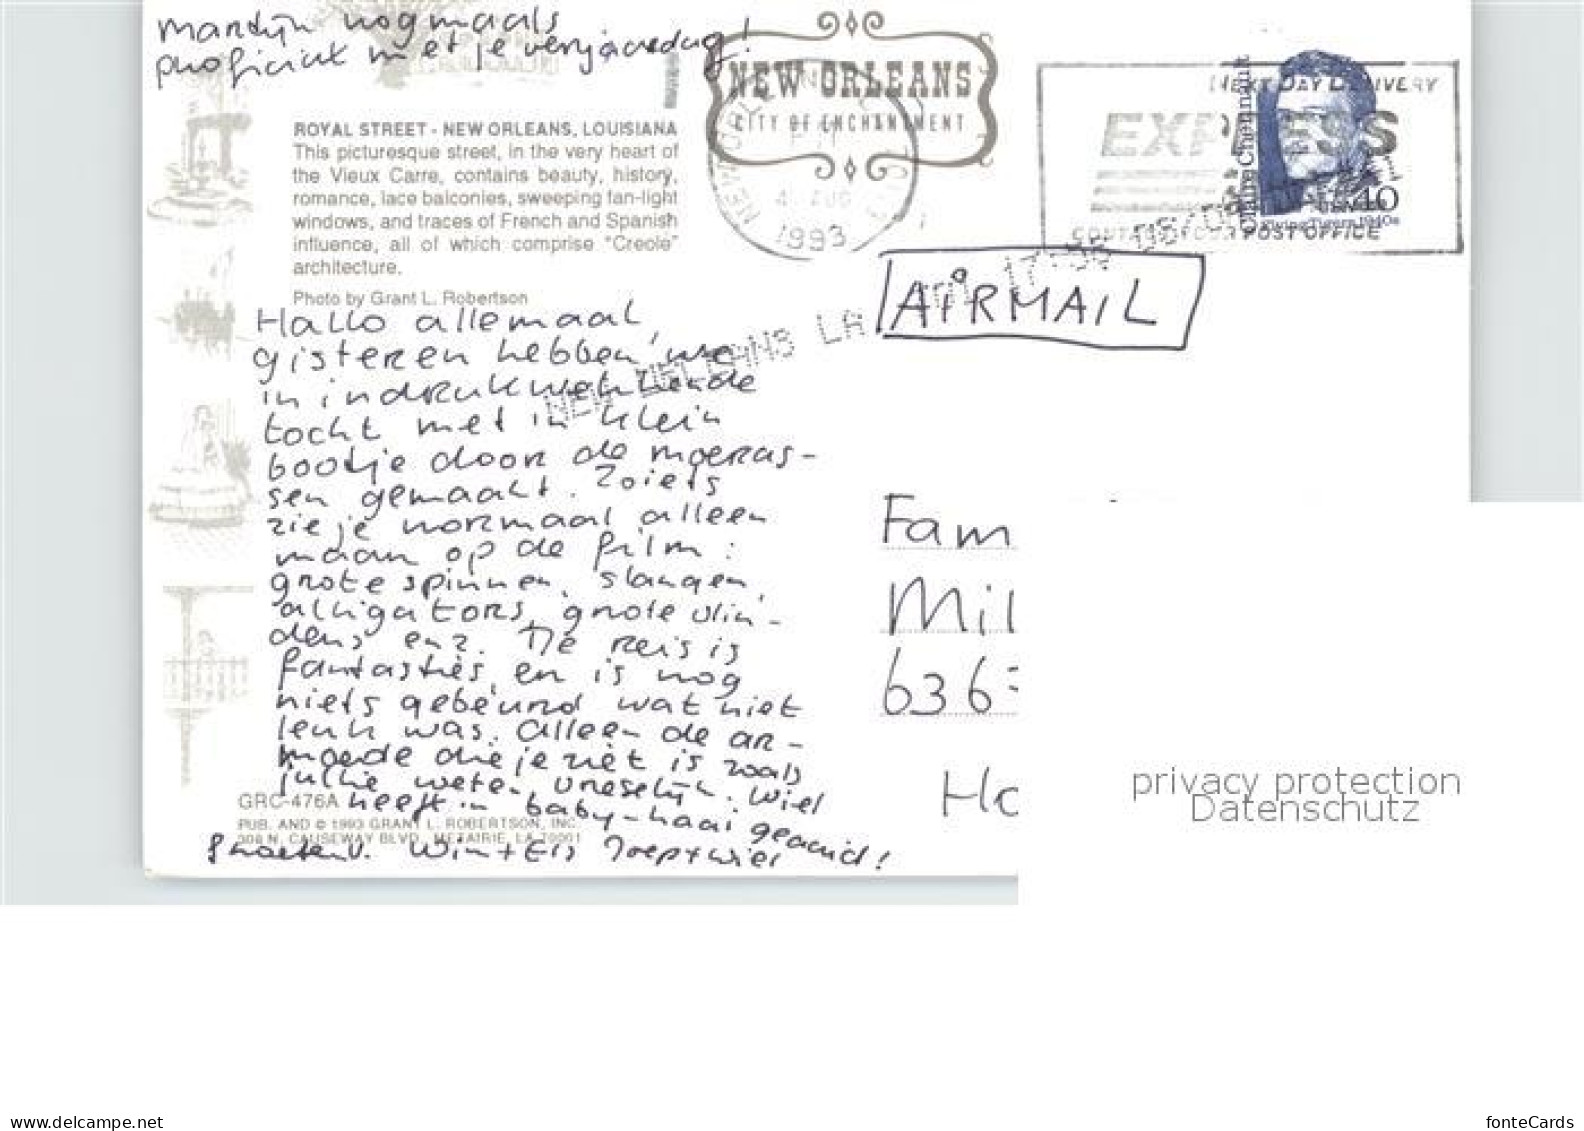 Martijn nogmaals
proficiat met je verjaardag!
NEW ORLEANS
CITY OF ENCHANTMENT
NEXT DAY DELIVERY
EXPRESS
POST OFFICE
Claire Chennault
40
1940s
4 AUG
1993
ROYAL STREET - NEW ORLEANS, LOUISIANA
This picturesque street, in the very heart of
the Vieux Carre, contains beauty, history,
romance, lace balconies, sweeping fan-light
windows, and traces of French and Spanish
influence, all of which comprise "Creole"
architecture.
Photo by Grant L. Robertson
AIRMAIL
NEW ORLEANS LA
Hallo allemaal,
gisteren hebben we
'n indrukwekkende
tocht met 'n klein
bootje door de moeras-
sen gemaakt. Zoiets
zie je normaal alleen
maar op de film:
grote spinnen, slangen,
alligators, grote vlin-
ders enz. De reis is
fantasties, en is nog
niets gebeurd wat niet
leuk was. Alleen de ar-
moede die je ziet is zoals
jullie weten vreselijk. Wiel
heeft 'n baby-haai geaaid!
Groeten v. Wim + Els Joep + Wiel
GRC-476A
PUB. AND © 1993 GRANT L. ROBERTSON, INC.
N. CAUSEWAY BLVD., METAIRIE, LA 70001
Fam
Mil
636
Ho
privacy protection
Datenschutz
www.delcampe.net
fonteCards